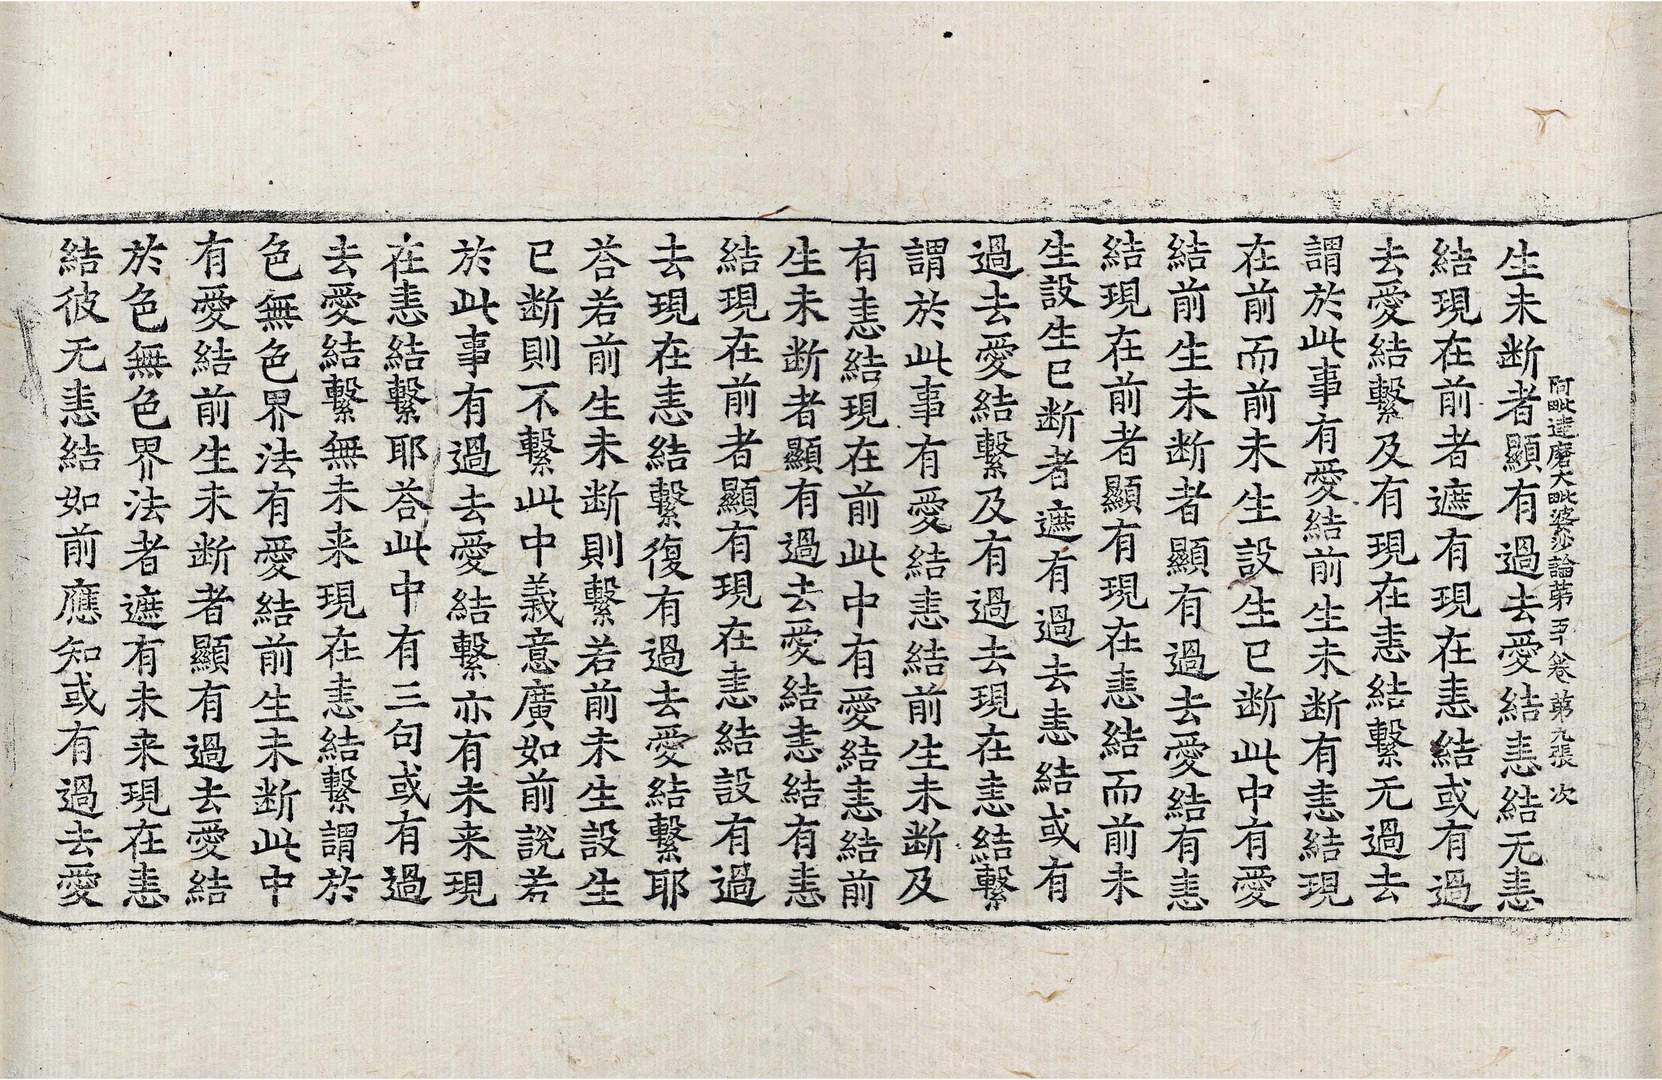 阿毗達磨大毗婆沙論苐五十八卷 苐九張 次
生未断者顯有過去愛結恚結无恚
結現在前者遮有現在恚結或有過
去愛結繫及有現在恚結繫无過去
謂於此事有愛結前生未断有恚結現
在前而前未生設生已断此中有愛
結前生未断者顯有過去愛結有恚
結現在前者顯有現在恚結而前未
生設生已断者遮有過去恚結或有
過去愛結繫及有過去現在恚結繫
謂於此事有愛結恚結前生未断及
有恚結現在前此中有愛結恚結前
生未断者顯有過去愛結恚結有恚
結現在前者顯有現在恚結設有過
去現在恚結繫復有過去愛結繫耶
荅若前生未断則繫若前未生設生
已断則不繫此中義意廣如前說若
於此事有過去愛結繫亦有未来現
在恚結繫耶荅此中有三句或有過
去愛結繫無未来現在恚結繫謂於
色無色界法有愛結前生未断此中
有愛結前生未断者顯有過去愛結
於色無色界法者遮有未来現在恚
結彼无恚結如前應知或有過去愛